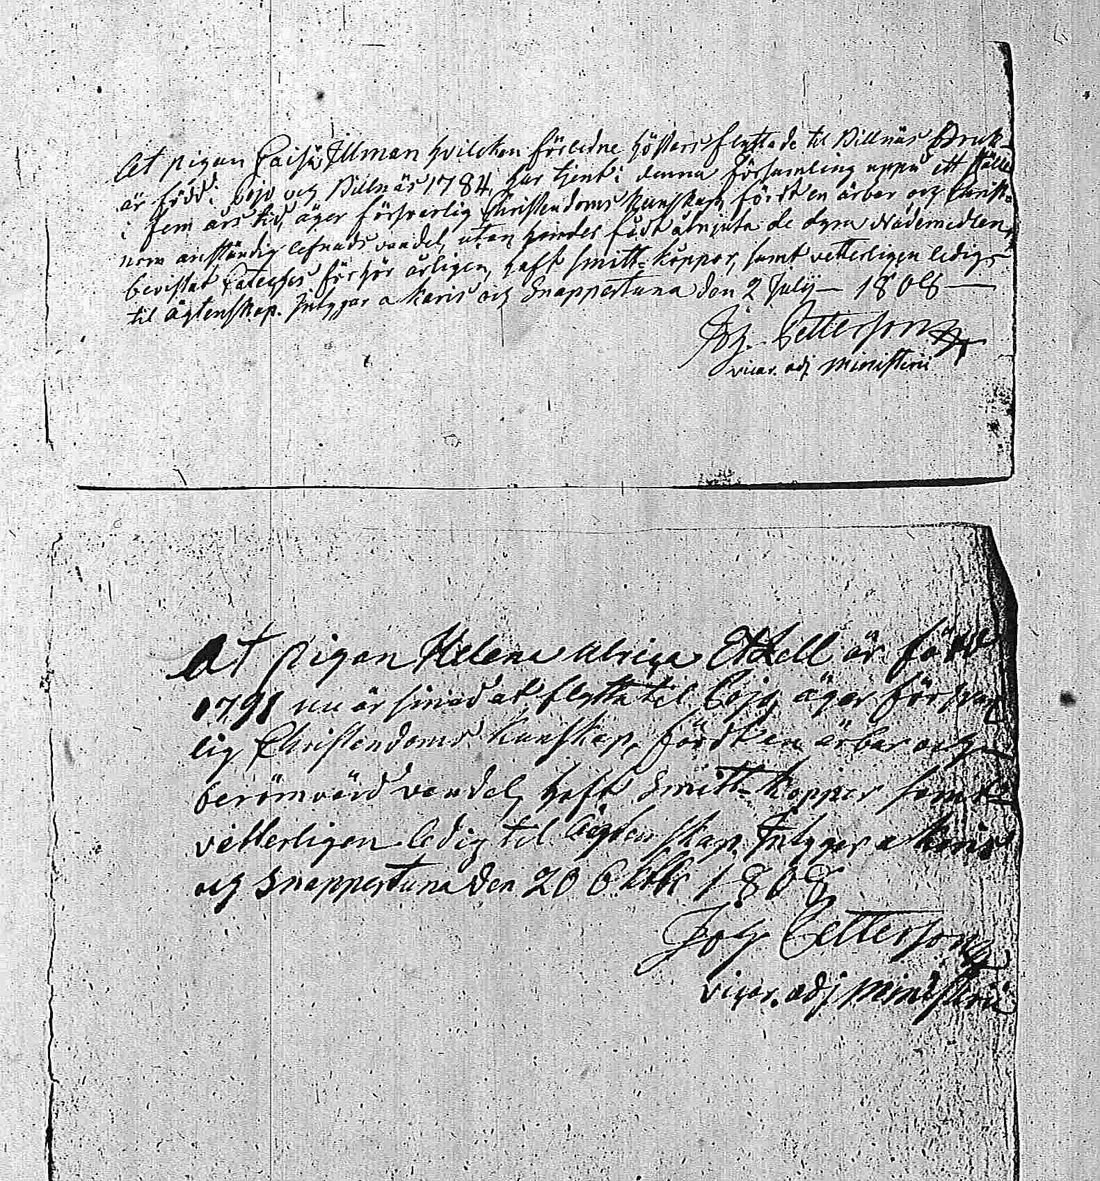 At pigan Caisa Illman hvilcken förledne höstars flyttade til Billnäs Bruk
är född i Pojo och Billnäs 1784, har tjent i denna församling uppå ett ställe
i fem års tid, äger försvarlig Christendoms kunskap, fördt en ärbar och
nom anständig lefnads vandel, utan hinder fådt åtnjuta de dyra Nådemedlen,
bevistat Cateches förhör årligen, haft smitt-koppor, samt vetterligen ledig
til ägtenskap. Intygar a Karis och Snappertuna den 2 Julij 1808
Joh. Petterson
vicar. adj. ministerii
At pigan Helena Ulrica Ekell är född
1791 nu är sinnad at flytta til Pojo, äger försvar
lig Christendoms kunskap, fördt en ärbar och
berömvärd vandel, haft smitt-koppor samt
vetterligen ledig til ägtenskap. Intygar a Karis
och Snappertuna den 20 Oktbr 1808
Joh Petterson
vicar. adj ministerii